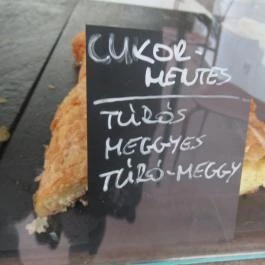 CUKOR-
MENTES
TÚRÓS
MEGGYES
TÚRÓ-MEGGY